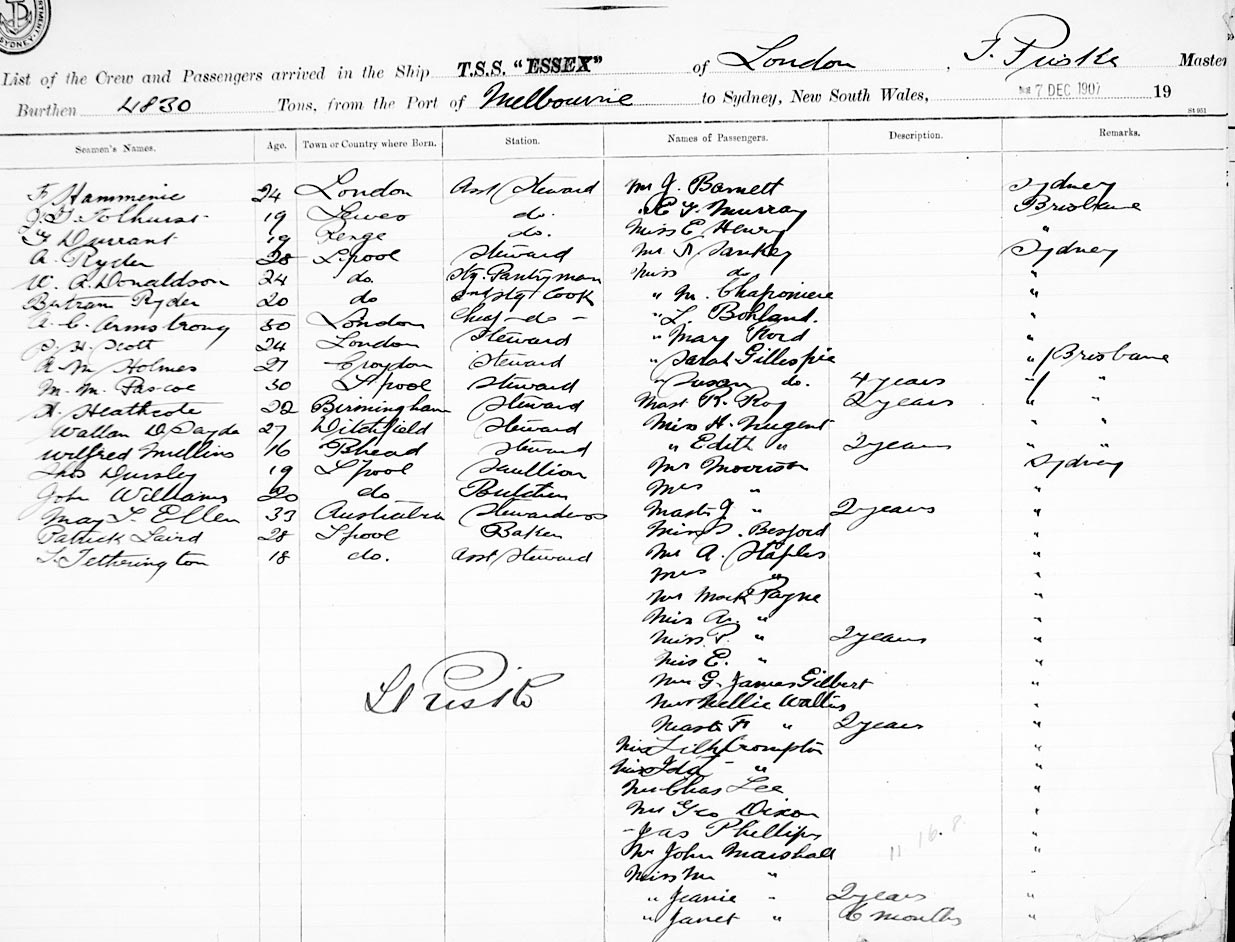 SYDNEY
List of the Crew and Passengers arrived in the Ship T.S.S. "ESSEX" of London, Master
Burthen 4830 Tons, from the Port of Melbourne to Sydney, New South Wales, 7 DEC 1907 19
Seamen's Names. Age. Town or Country where Born. Station. Names of Passengers. Description. Remarks.
24 London Asst Steward Mr J. Barnett Sydney
J. T. Tolhurst 19 Lewes do. E. J. Murray Brisbane
Durrant 19 Penge do. Miss E. Henry "
A. Ryder 28 L'pool Steward Mr Sankey Sydney
W. A. Donaldson 24 do. Stg. Pantryman Miss do "
Bertram Ryder 20 do Cook " M. Chaponiere "
A. C. Armstrong 30 London Chief - do - " L. Bohland. "
H. Scott 24 London Steward " Mary Ford "
A. M. Holmes 27 Croydon Steward " Sarah Gillespie " / Brisbane
M. M. Pascoe 30 L'pool Steward " Susan do. 4 years " / "
H. Heathcote 22 Birmingham Steward Mast R. Roy 2 years " "
27 Ditchfield Steward Miss H. Nugent " "
Wilfred Mullins 16 B'head Steward " Edith " 2 years " "
Thos Dursley 19 L'pool Scullion Mr Morrison Sydney
John Williams 20 do Butcher Mrs " "
May L. Ellen 33 Australia Stewardess Mast J " 2 years "
Patrick Laird 28 L'pool Baker Miss S. Besford "
L. Tetherington 18 do. Asst Steward Mr A. Staples "
Mrs " "
Mr Mark Payne "
Miss A. " "
Miss P. " 2 years "
Miss E. " "
G. James Gilbert "
Mrs Nellie Wallis "
Mast F " 2 years "
Miss Lily Crompton "
Miss Ida - " "
Mr Chas Lee "
Mr Geo Dixon "
- Jas Phillips "
Mr John Marshall 11 16.8 "
Miss M " "
" Jeanie " 2 years "
" Janet " 6 months "